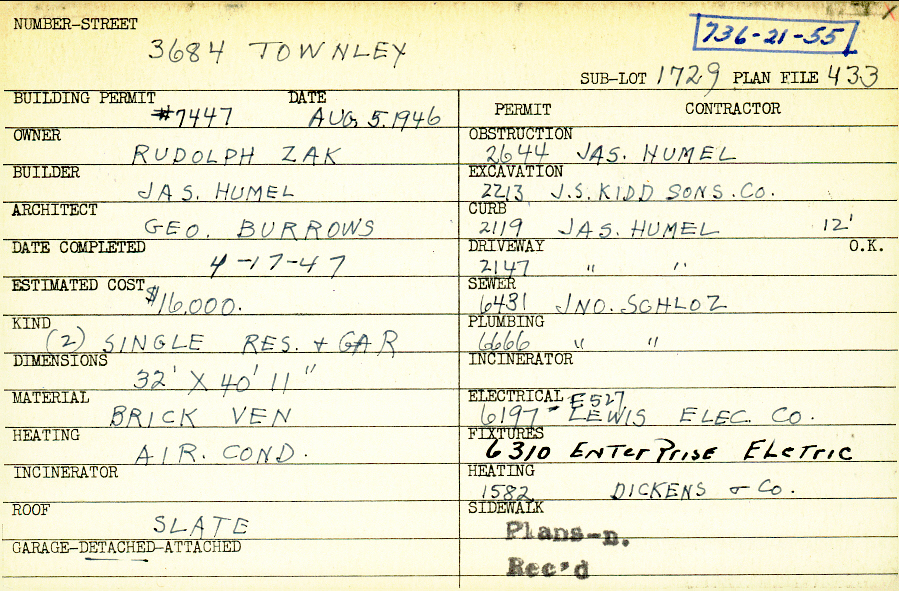 NUMBER-STREET
3684 TOWNLEY
736-21-55
SUB-LOT 1729 PLAN FILE 433
BUILDING PERMIT DATE
#7447 AUG. 5. 1946
OWNER
RUDOLPH ZAK
BUILDER
JAS. HUMEL
ARCHITECT
GEO. BURROWS
DATE COMPLETED
4-17-47
ESTIMATED COST
$16,000.
KIND
(2) SINGLE RES. + GAR
DIMENSIONS
32' X 40' 11"
MATERIAL
BRICK VEN
HEATING
AIR. COND.
INCINERATOR
ROOF
SLATE
GARAGE-DETACHED-ATTACHED
PERMIT CONTRACTOR
OBSTRUCTION
2644 JAS. HUMEL
EXCAVATION
2213 J.S. KIDD SONS. CO.
CURB
2119 JAS. HUMEL 12'
DRIVEWAY O.K.
2147 " "
SEWER
6431 JNO. SCHLOZ
PLUMBING
6666 " "
INCINERATOR
ELECTRICAL E527
6197 - LEWIS ELEC. CO.
FIXTURES
6310 ENTerPrise ELetric
HEATING
1582 DICKENS & CO.
SIDEWALK
Plans-n.
Rec'd